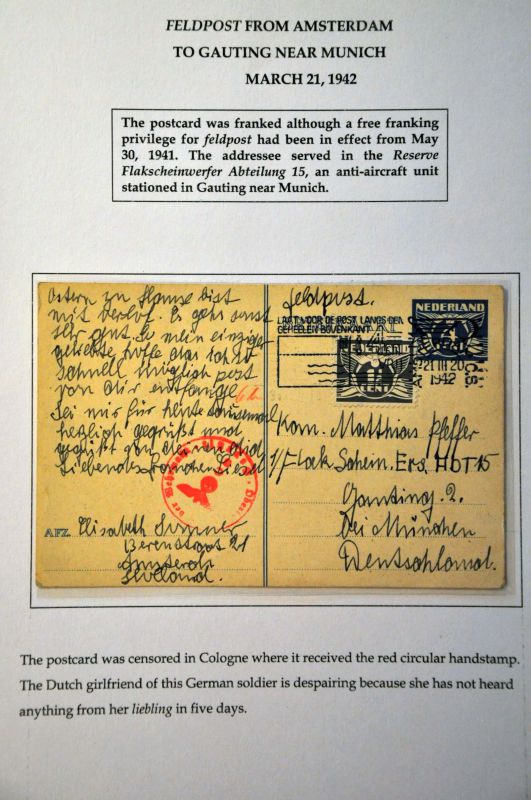 FELDPOST FROM AMSTERDAM
TO GAUTING NEAR MUNICH
MARCH 21, 1942
The postcard was franked although a free franking
privilege for feldpost had been in effect from May
30, 1941. The addressee served in the Reserve
Flakscheinwerfer Abteilung 15, an anti-aircraft unit
stationed in Gauting near Munich.
Ostern zu Hause bist
mit Es geht sonst
sehr gut. So mein einziger
geliebter hoffe das ich so
schnell möglich post
von dir
Sei mir für heute tausendmal
herzlich gegrüßt und
geküßt von
Liebenden Liesel
AFZ. Elisabeth
21
Feldpost.
NEDERLAND
LAAT VOOR DE POST LANGS DEN
GEHEELEN BOVENKANT
21 III 20
1942
Kan. Matthias Pfeffer
1/Flak Schein. Ers.
Gauting. 2.
bei München
Deutschland.
The postcard was censored in Cologne where it received the red circular handstamp.
The Dutch girlfriend of this German soldier is despairing because she has not heard
anything from her liebling in five days.